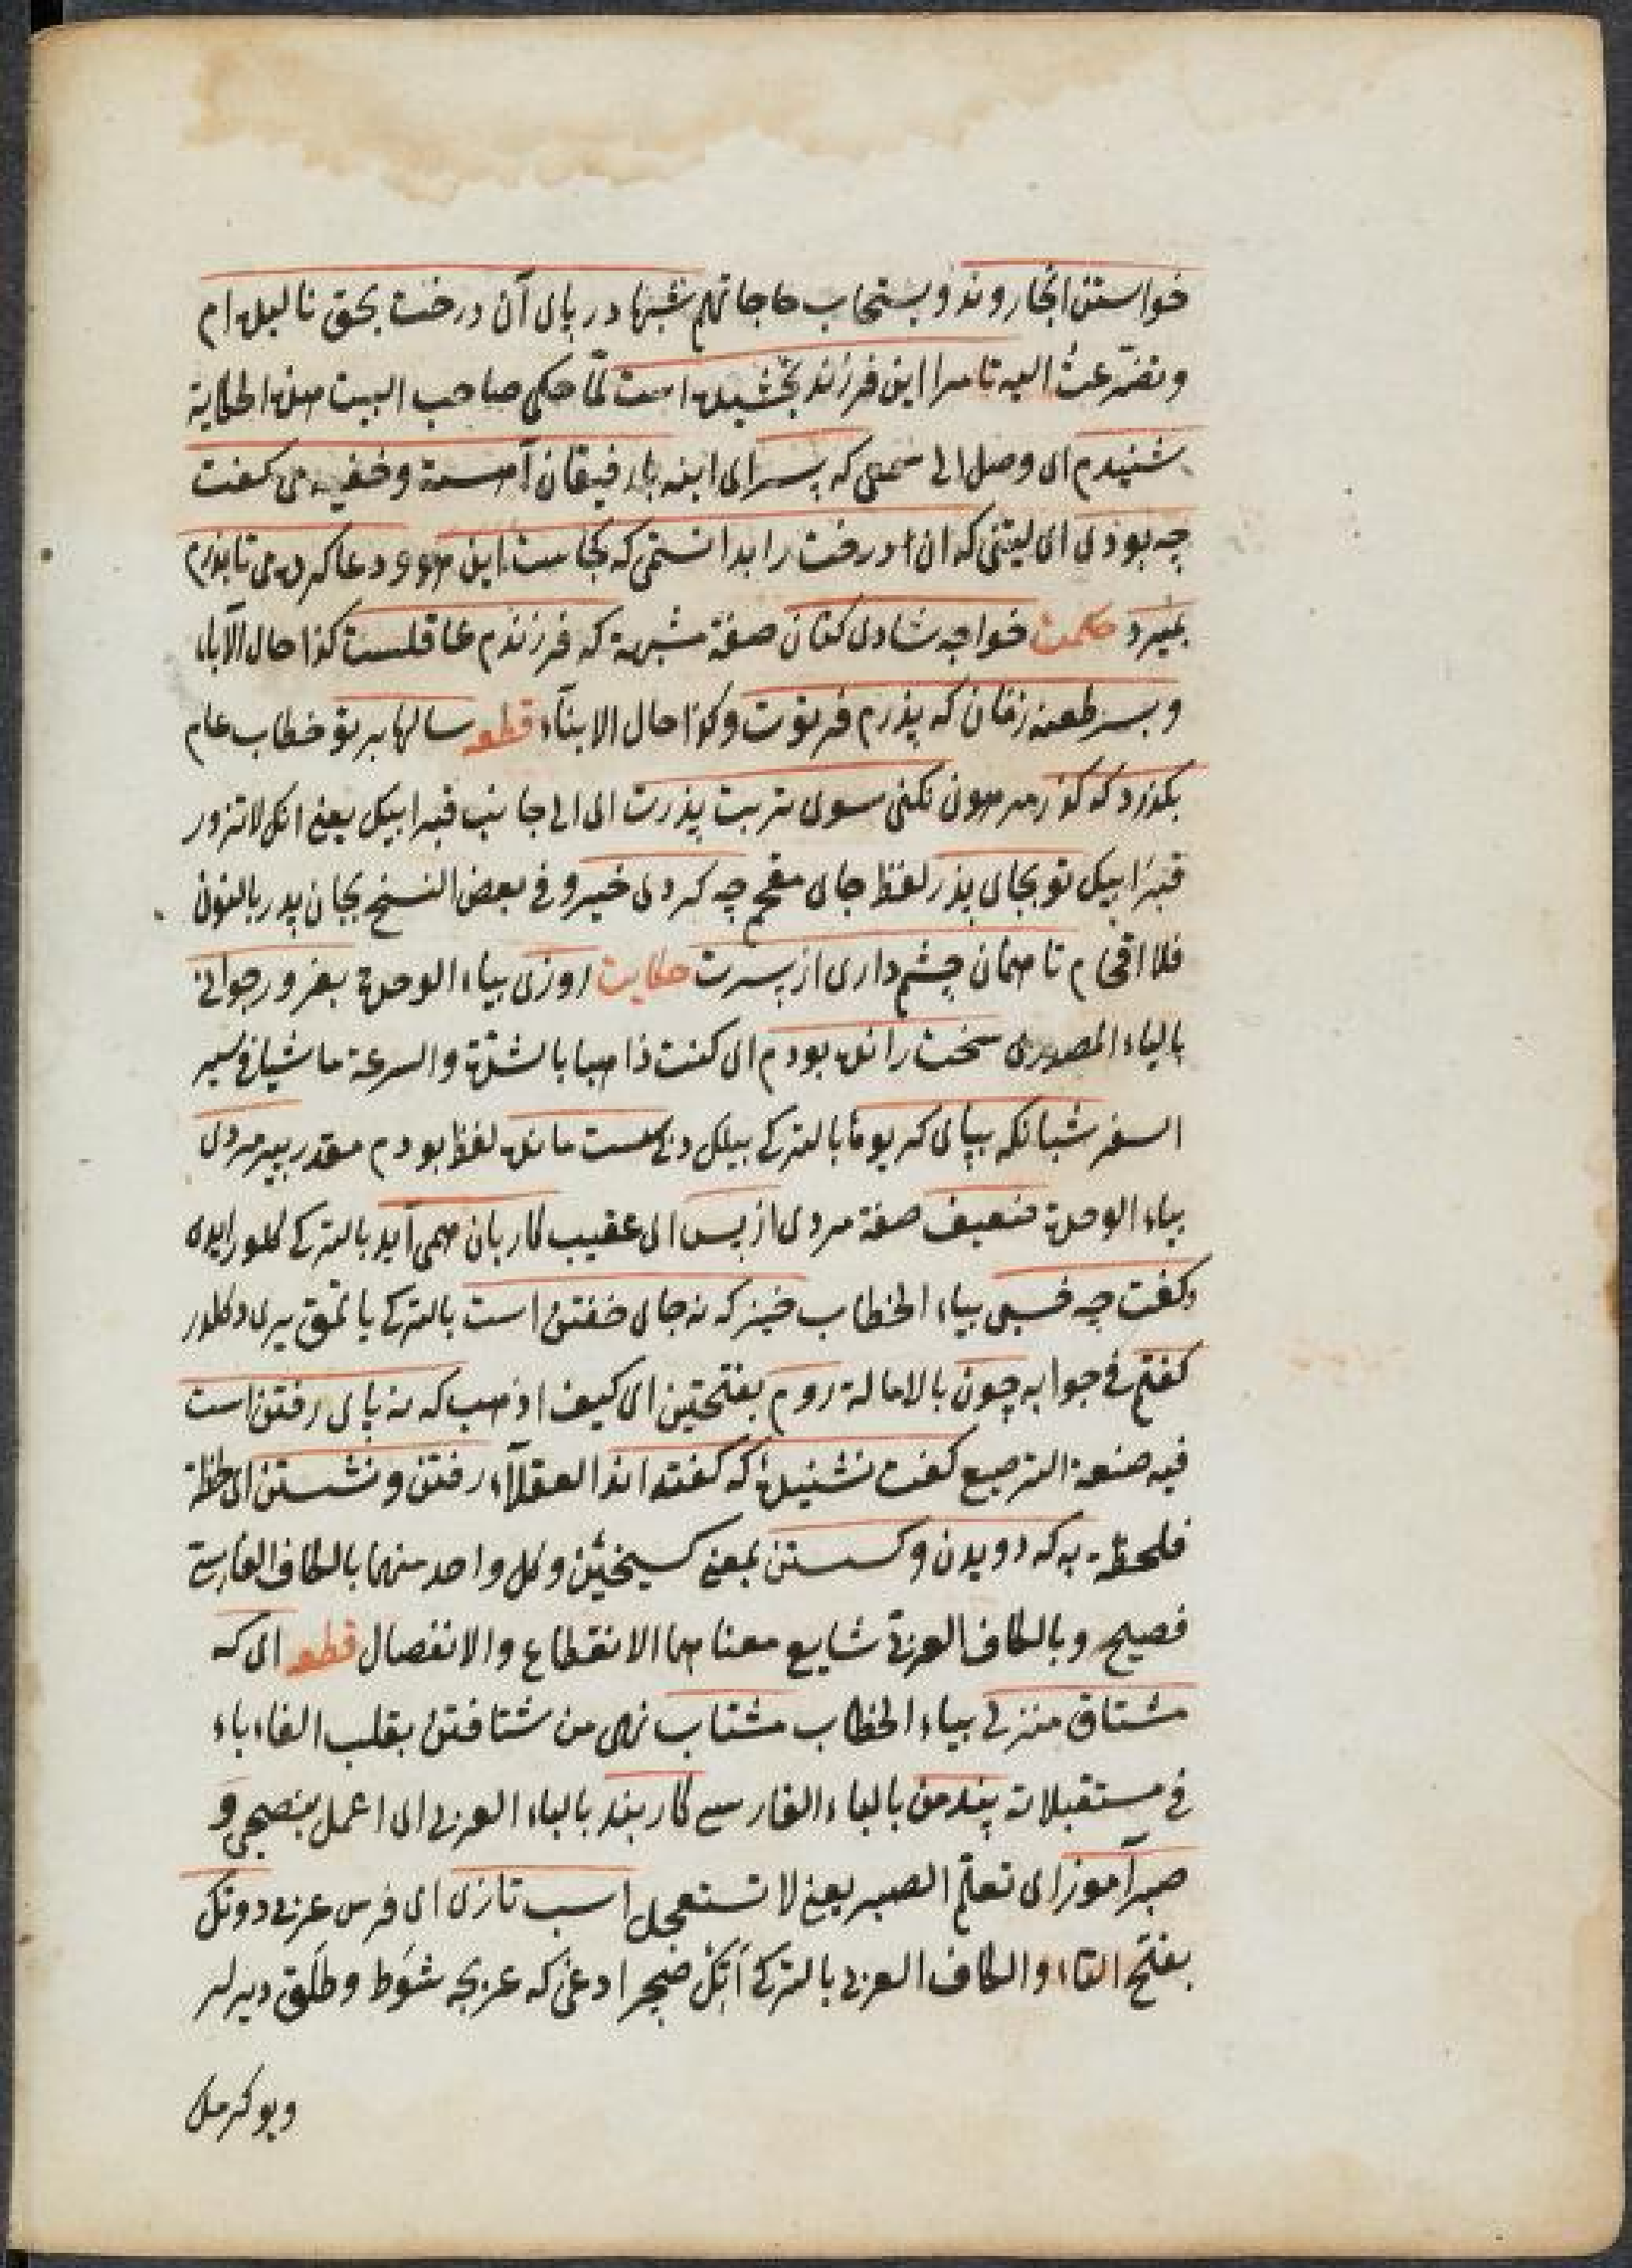 خواستن انجا روند و يستجاب حاجاتهم شبها در پای آن درخت بحق نالیده ام
وتضرعتُ اليه تا مرا این فرزند بخشیده است لما حكى صاحب البيت هذه الحكاية
شنیدم ای وصل الی سمعی که پسر ای ابنه با رفیقان آهسته و خفیه می کفت
چه بودی ای لیتنی که ان درخت را بدانستمی که کجاست این هوو دعا کردمی تا پذرم
بمیرد حکمت خواجه شادی کنان صفة مشبهة که فرزندم عاقلست کذا حال الآباء
و پسر طعنه زنان که پذرم فرتوت و کذا حال الابناء قطعه سالها بر تو خطاب عام
بکذرد که کذر مرهون نکنی سوی تربت پذرت ای الی جانب قبر ابیک یعنی انک لا تزور
قبر ابیک تو بجای پذر لفظ جای مقحم چه کردی خیر و فی بعض النسخ بجان پدر بالنون
فلا اقحام تا همان چشم داری از پسرت حکایت روزی بیاء الوحدة بغرور جوانی
بالیاء المصدری سخت رانده بودم ای کنت ذاهبا بالشدة والسرعة ماشیا فی سیر
السفر شبانکه بپای کریوهٔ بالترکی بیلک دخی سست مانده لفظ بودم مقدر پیر مردی
بیاء الوحدة ضعیف صفة مردی از پس ای عقیب کاربان همی آید بالترکی کلور ایدی
وکفت چه خسبی بیاء الخطاب خیز که نه جای خفتن است بالترکی یاتمق یری دکلدر
کفتم فی جوابه چون بالامالة روم بفتحتین ای کیف اذهب که نه پای رفتن است
فیه صنعة الترصیع کفت نشنیدهٔ که کفته اند العقلاء رفتن و نشستن ای لحظة
فلحظة به که دویدن و کسستن بمعنی کسیختن و کل واحد منهما بالکاف الفارسیة
فصیح و بالکاف العربی شایع معناهما الانقطاع والانفصال قطعه ای که
مشتاق منزلی بیاء الخطاب مشتاب نهی من شتافتن بقلب الفاء باء
فی مستقبلاته پند من بالباء الفارسی کار بند بالباء العربی ای اعمل بنصحی و
صبر آموز ای تعلّم الصبر یعنی لا تستعجل اسب تازی ای فرس عربی دو تک
بفتح التاء والکاف العربی بالترکی اتک صیجرادغی که عربجه شوط وطلق دیرلر
ویوکرمک